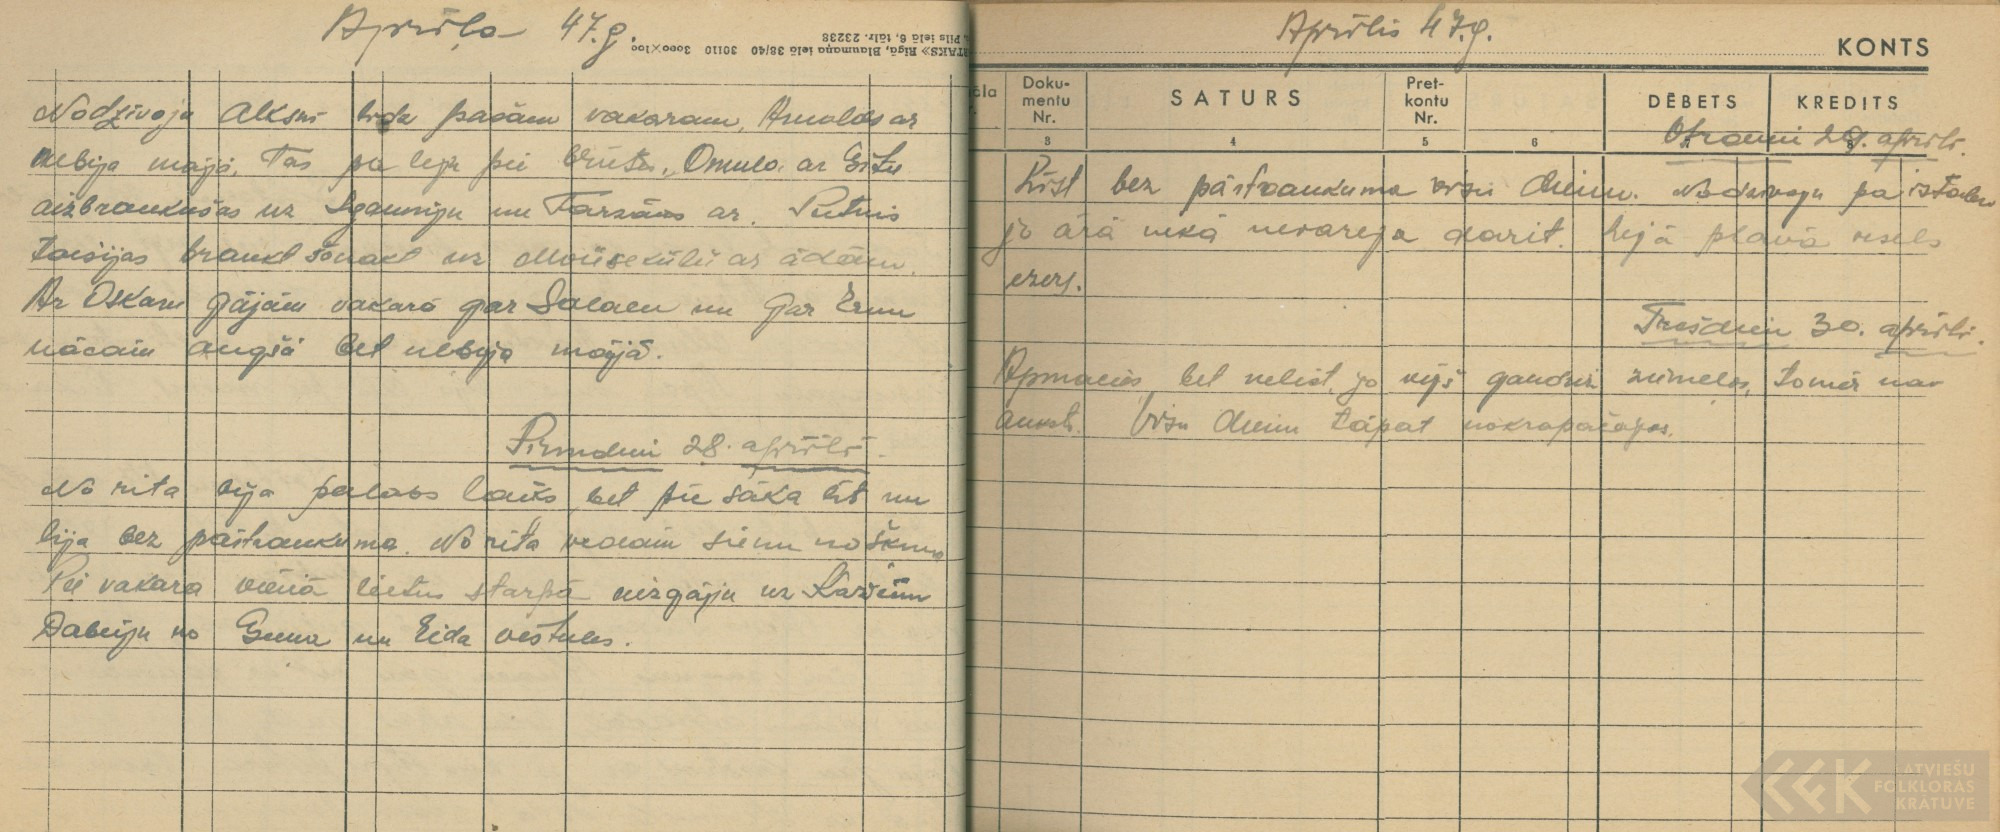 Aprīļa 47.g.
Nodzīvoju Alksni līdz pašam vakaram, Arnolds ar
nebija mājā. Tas pa leju pie Omula ar
aizbraukušas uz Igauniju un Tarzāns ar. Putnis
taisijas braukt šonakt uz Moiseküli ar ādām.
Ar Oskaru gājām vakarā gar Salacu un gar
nācām augšā bet nebija mājā.
Pirmdien 28. aprīlī.
No rīta bija palabs laiks, bet pie sāka līt un
lija bez pārtraukuma. No rīta vedām sienu no šķūņa
Pie vakara vienā lietus starpā aizgāju uz
Dabūju no un Eida vēstules.
TAKS» Rīgā, Blaumaņa ielā 38/40 30110 3000×100
Pils ielā 6, tālr. 23238
Aprīlis 47.g.
KONTS
Doku-
mentu
Nr.
SATURS
Pret-
kontu
Nr.
DĒBETS
KREDITS
3 4 5 6 7 8
Otrdien 29. aprīlī.
Līst bez pārtraukuma visu dienu. Nodzīvoju pa istabu
jo ārā nekā nevarēja darīt. Lejā pļavā vesels
ezers.
Trešdien 30. aprīlī.
Apmācies, bet nelīst, jo vējš gandrīz ziemelos, tomēr nav
auksts. Visu dienu tāpat nokrapačājos.
LATVIEŠU
FOLKLORAS
KRĀTUVE